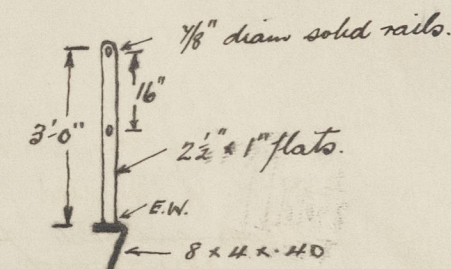 7/8" diam solid rails.
16"
3'-0"
2½" x 1" flats.
E.W.
8 x 4 x .40